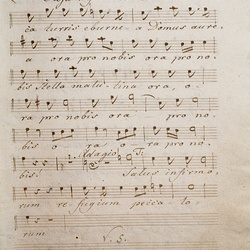 ca turris eburne a Domus aure
a ora pro nobis ora pro no
bis Stella matu tina ora, o
ra pro nobis ora pro no
bis o ra o ra pro no
Adagio
bis. Salus infirmo,
rum re fugium pecca to
rum V. S.